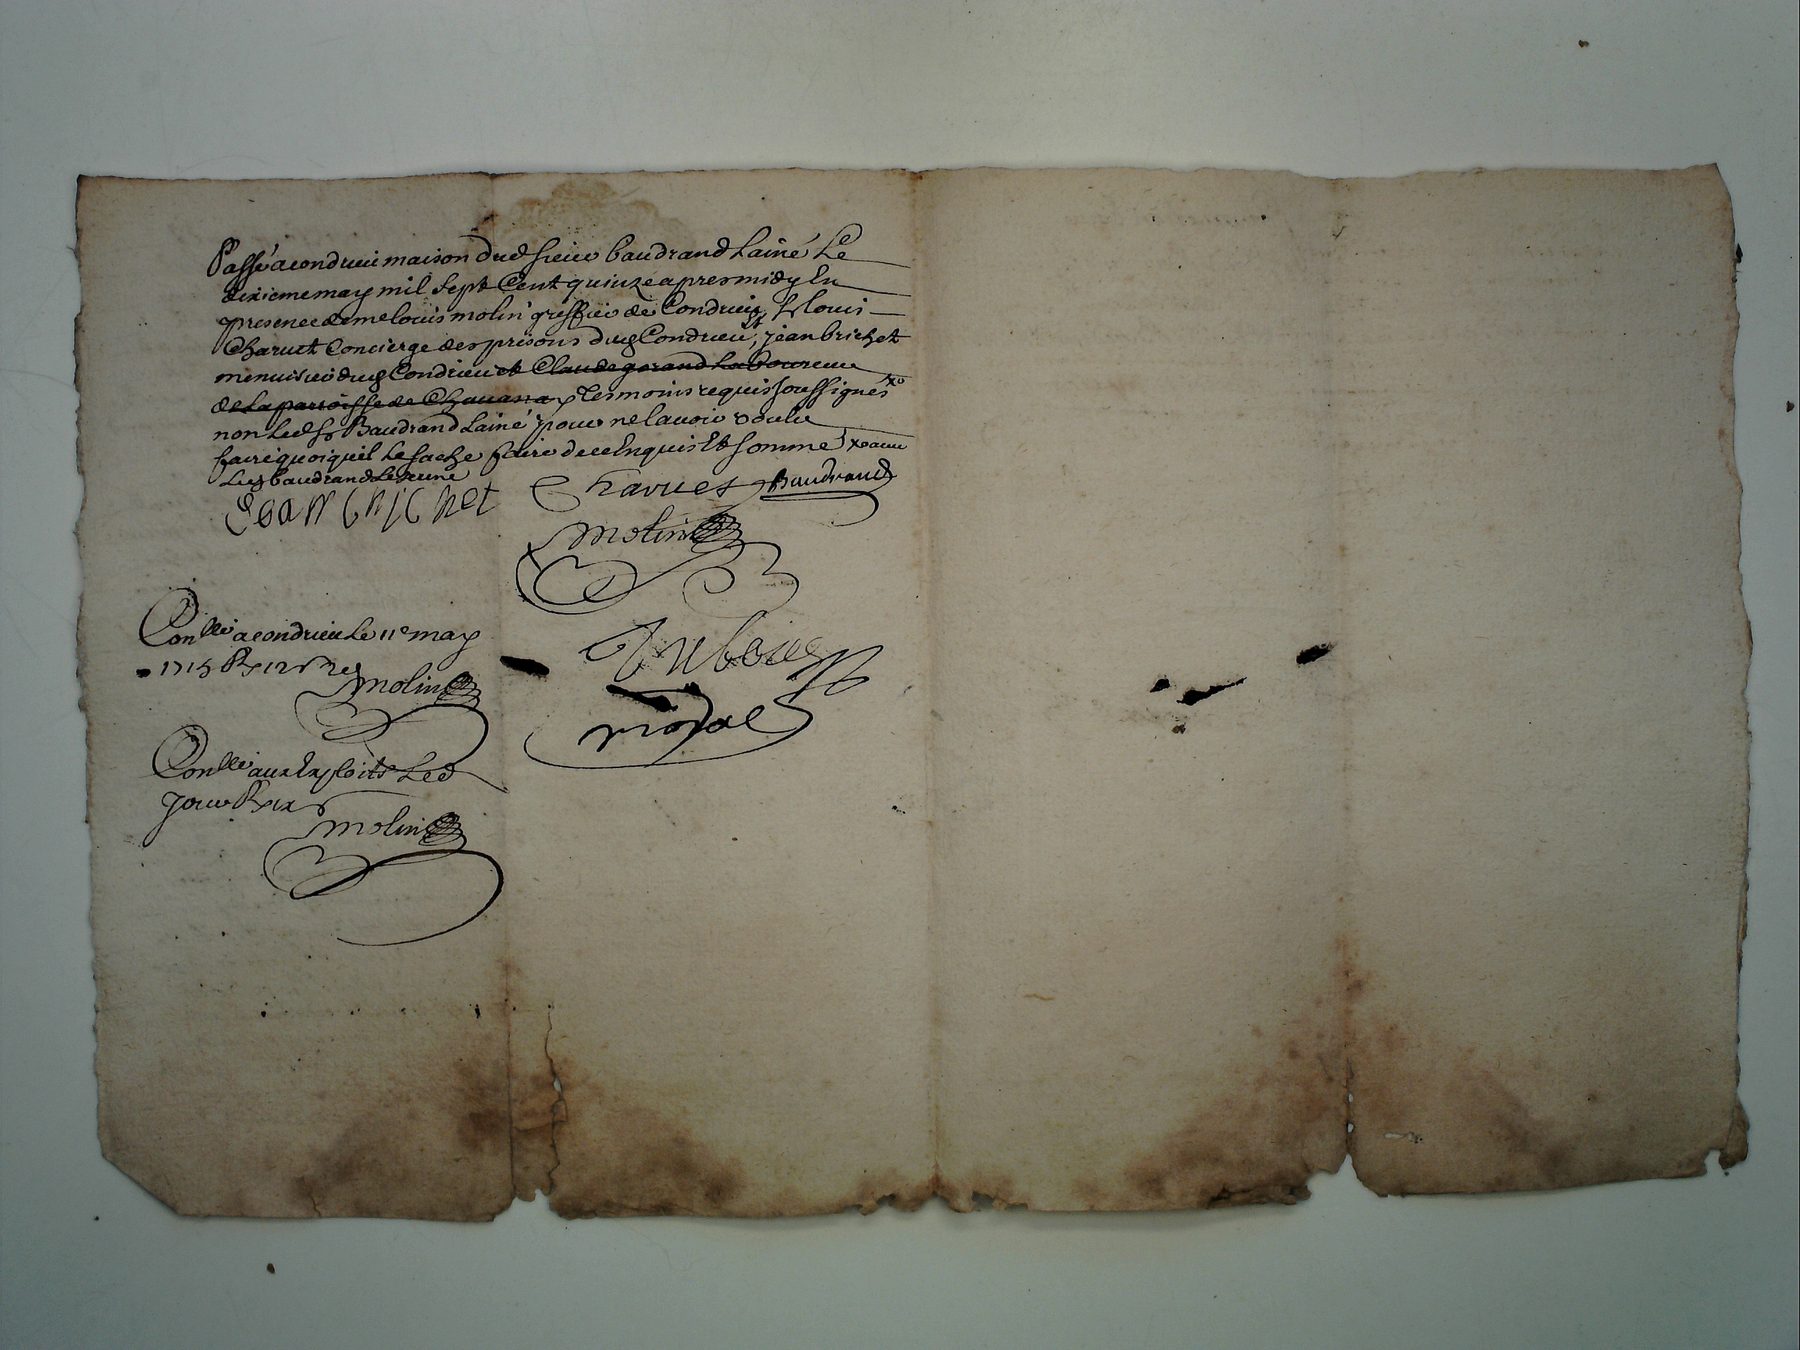 Passé a condrieu maison dud sieur baudrand Laine Le
dixieme may mil sept Cent quinze apres midy En
presence de me louis molin greffier de Condrieu, louis
Charvet Concierge des prisons dud Condrieu, et jean brichet
menuisier dud Condrieu et Claude gerand Laboureur
de La parroisse de Chavana tesmoins requis soussignes
non Led sr Baudrand Lainé pour ne lavoir voulu
faire quoiquil Le sache faire de ce Enquis Et somme
Led baudrand Le Jeune
Jean brichet Charvet Baudrand
molin
Conllé a condrieu Le 11e may
1715 R 12
molin
royal
Conllé aux Exploits Led
Jour R
molin